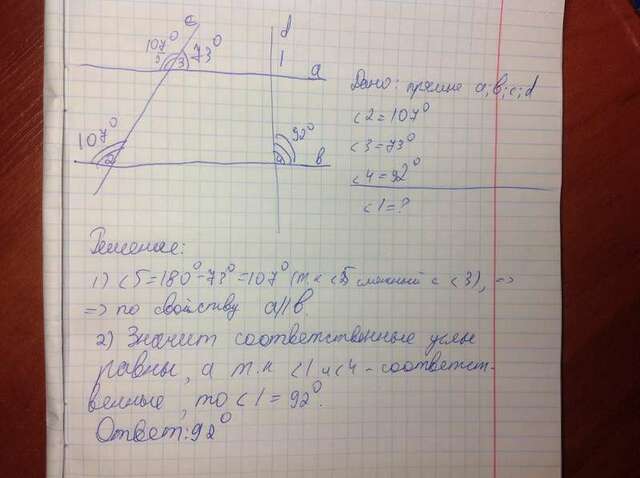 c
d
107°
5
3
73°
1
a
107°
2
92°
b
Дано: прямые a; b; c; d
<2=107°
<3=73°
<4=92°
<1=?
Решение:
1) <5=180°-73°=107° (т.к <5 смежный с <3), =>
=> по свойству a||b.
2) Значит соответственные углы
равны, а т.к <1 и <4 - соответст-
венные, то <1=92°.
Ответ: 92°